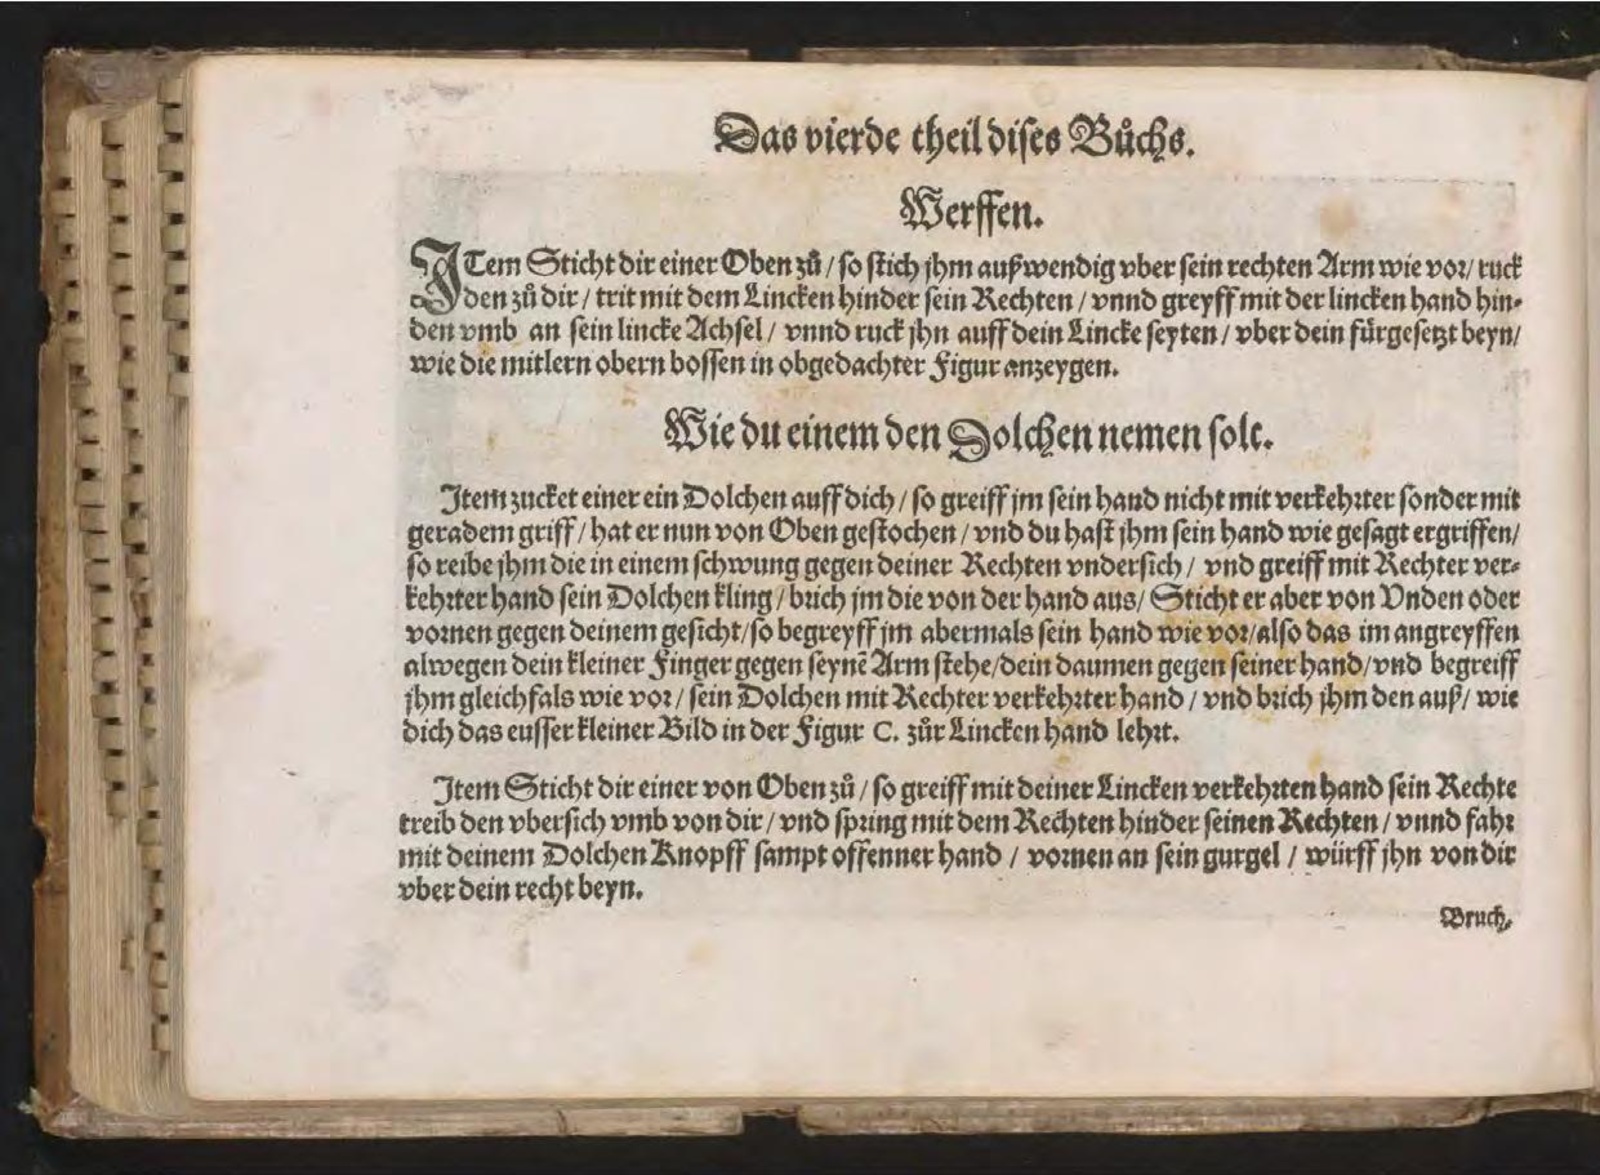 Das vierde theil dises Bůchs.
Werffen.
ITem Sticht dir einer Oben zů / so stich jhm außwendig vber sein rechten Arm wie vor / ruck
den zů dir / trit mit dem Lincken hinder sein Rechten / vnnd greyff mit der lincken hand hin-
den vmb an sein lincke Achsel / vnnd ruck jhn auff dein Lincke seyten / vber dein fürgesetzt beyn /
wie die mitlern obern bossen in obgedachter Figur anzeygen.
Wie du einem den Dolchen nemen solt.
Item zucket einer ein Dolchen auff dich / so greiff jm sein hand nicht mit verkehrter sonder mit
geradem griff / hat er nun von Oben gestochen / vnd du hast jhm sein hand wie gesagt ergriffen /
so reibe jhm die in einem schwung gegen deiner Rechten vndersich / vnd greiff mit Rechter ver-
kehrter hand sein Dolchen kling / brich jm die von der hand aus / Sticht er aber von Vnden oder
vornen gegen deinem gesicht / so begreyff jm abermals sein hand wie vor / also das im angreyffen
alwegen dein kleiner Finger gegen seynē Arm stehe / dein daumen gegen seiner hand / vnd begreiff
jhm gleichfals wie vor / sein Dolchen mit Rechter verkehrter hand / vnd brich jhm den auß / wie
dich das eusser kleiner Bild in der Figur C. zůr Lincken hand lehrt.
Item Sticht dir einer von Oben zů / so greiff mit deiner Lincken verkehrten hand sein Rechte
treib den vbersich vmb von dir / vnd spring mit dem Rechten hinder seinen Rechten / vnnd fahr
mit deinem Dolchen Knopff sampt offenner hand / vornen an sein gurgel / würff jhn von dir
vber dein recht beyn.
Bruch.